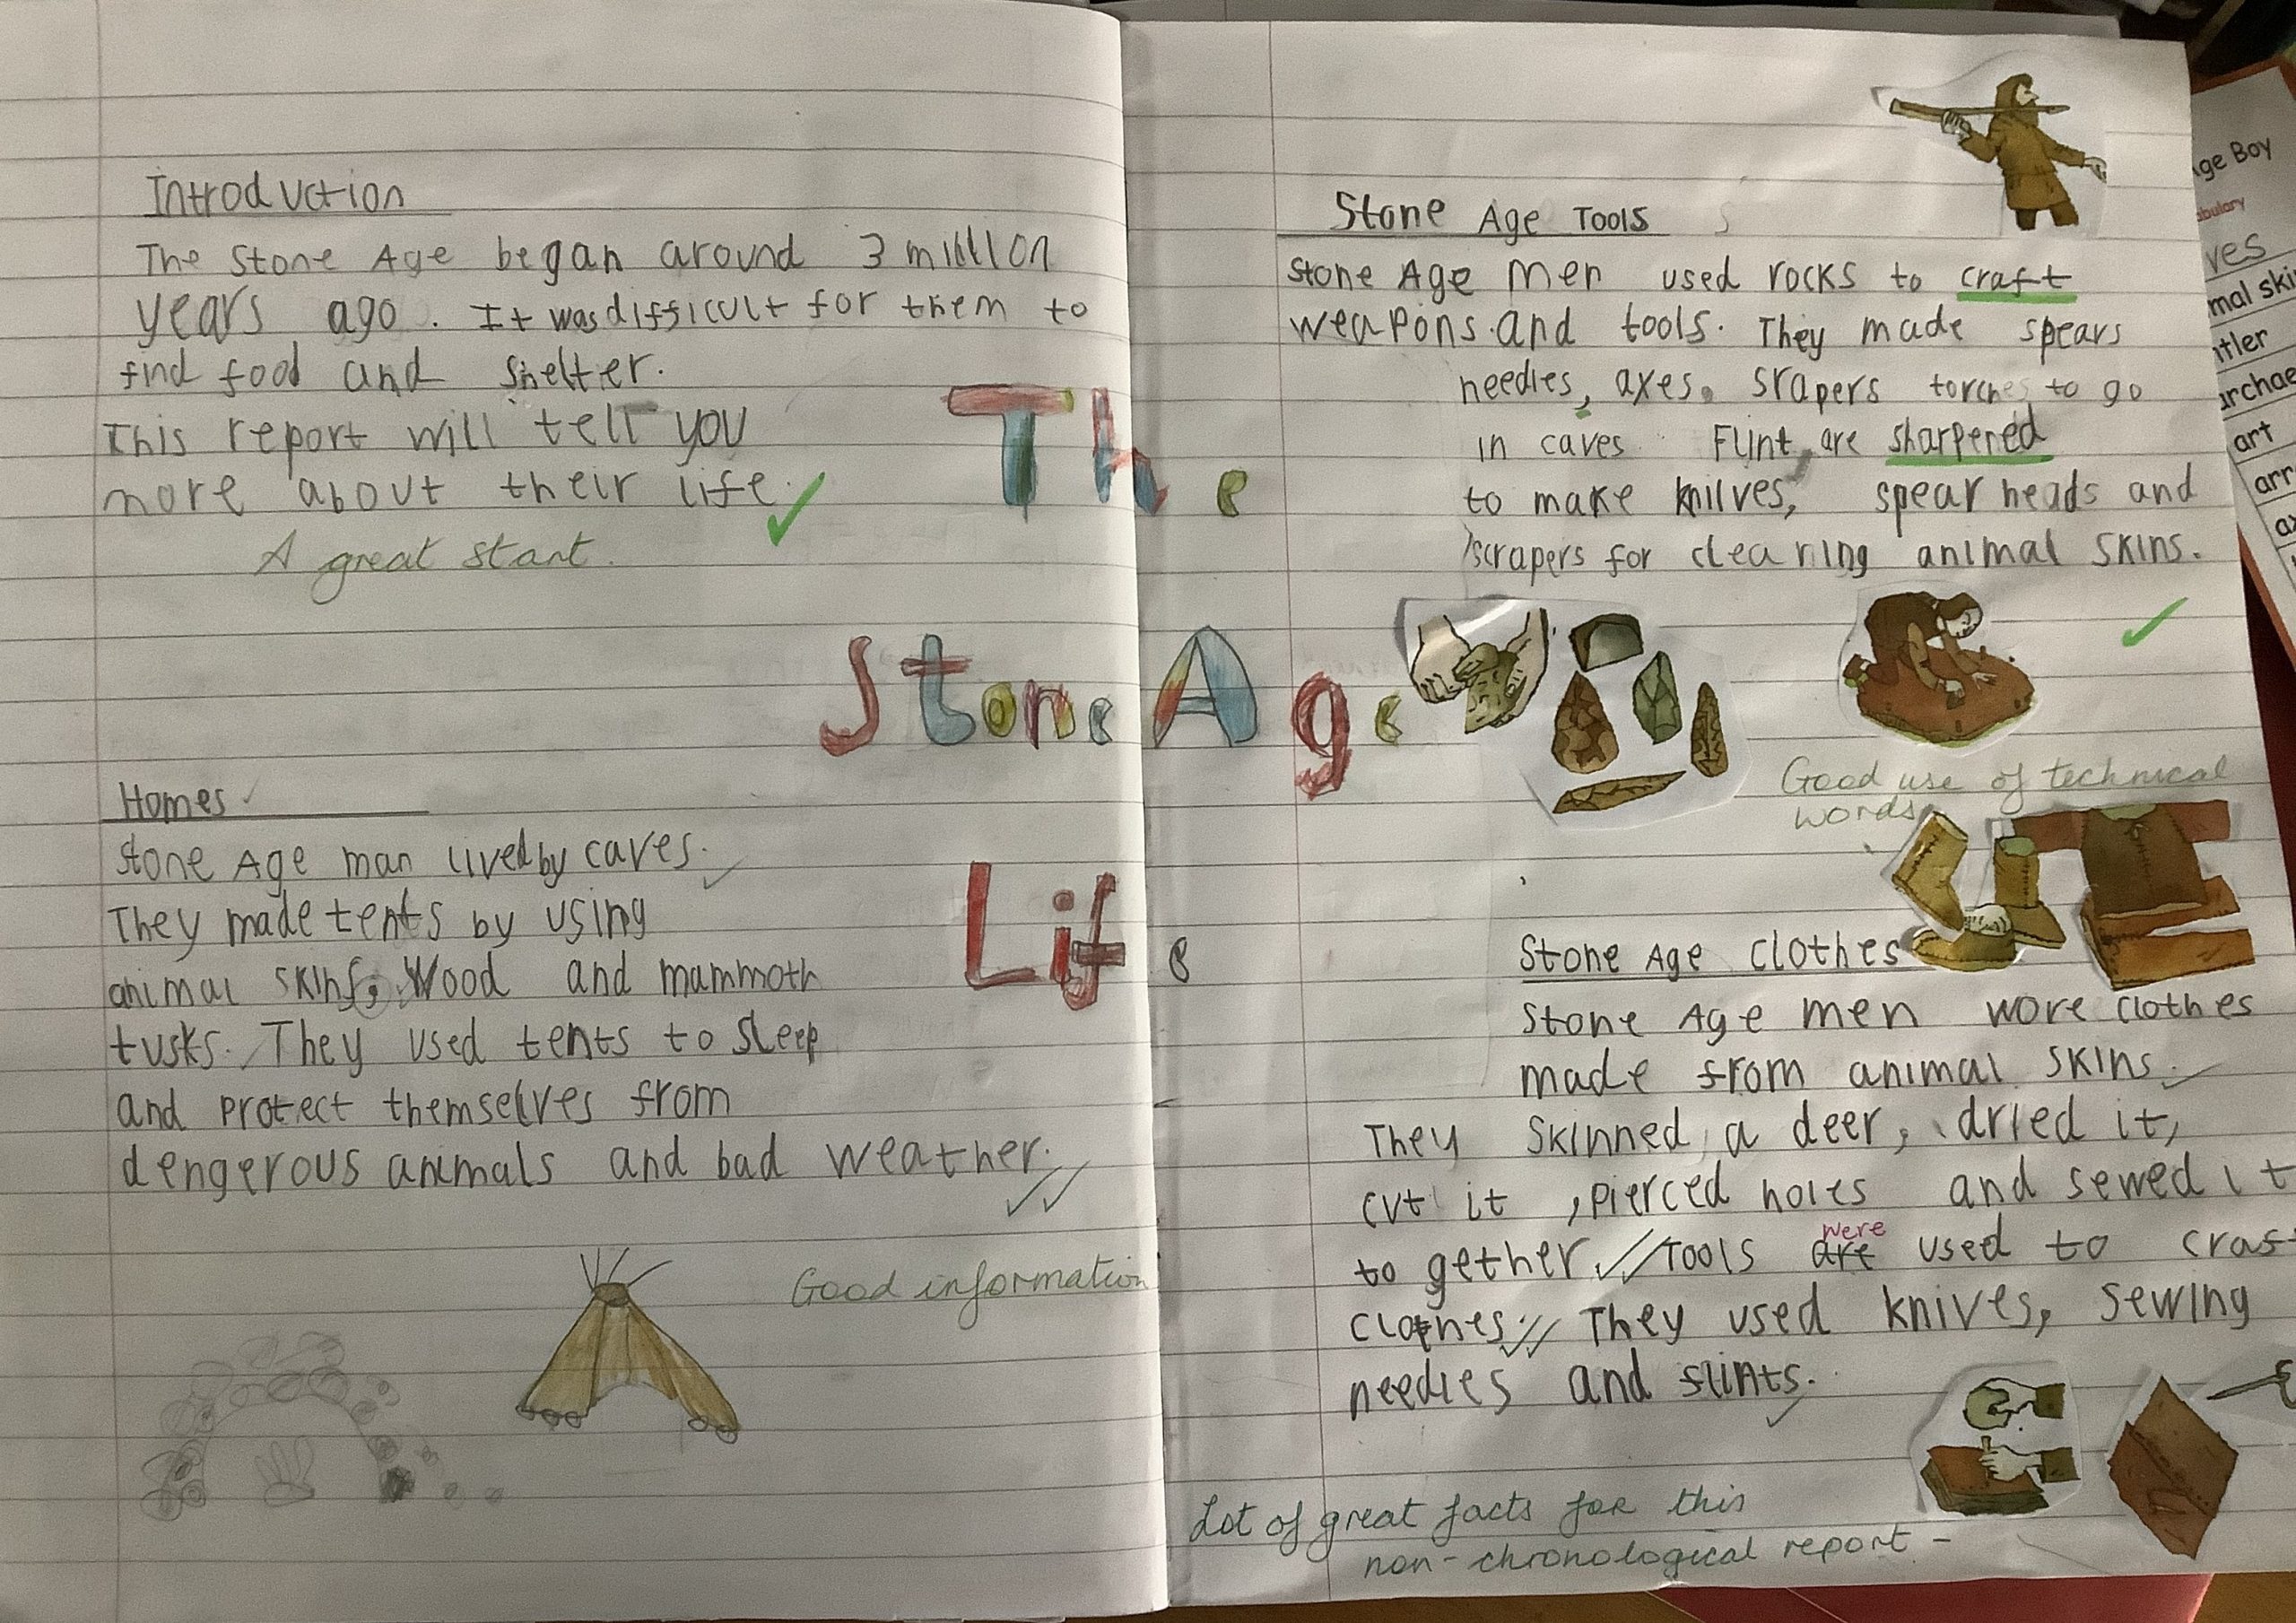 Introduction
The Stone Age began around 3 million
years ago. It was difficult for them to
find food and shelter.
This report will tell you
more about their life.
A great start.
The
Stone Age
Life
Homes
Stone Age man lived by caves.
They made tents by using
animal skins, Wood and mammoth
tusks. They used tents to sleep
and protect themselves from
dengerous animals and bad weather.
Good information
Stone Age Tools
Stone Age Men used rocks to craft
weapons and tools. They made spears
needles, axes, srapers torches to go
in caves Flint are sharpened
to make knilves, spear heads and
scrapers for clearing animal skins.
Good use of technical
words
Stone Age Clothes
Stone Age men wore clothes
made from animal skins.
They skinned a deer, dried it,
cut it, pierced holes and sewed it
to gether. Tools are used to craf
were
clothes. They used knives, sewing
needles and flints.
Lot of great facts for this
non-chronological report -
ge Boy
abulary
ves
mal ski
ntler
archae
art
arr